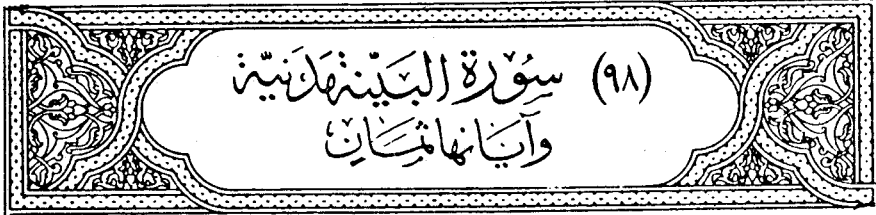 (٩٨) سُوْرَة البَيّنَة مَدَنيّة
وَآيَانهَا ثمَان